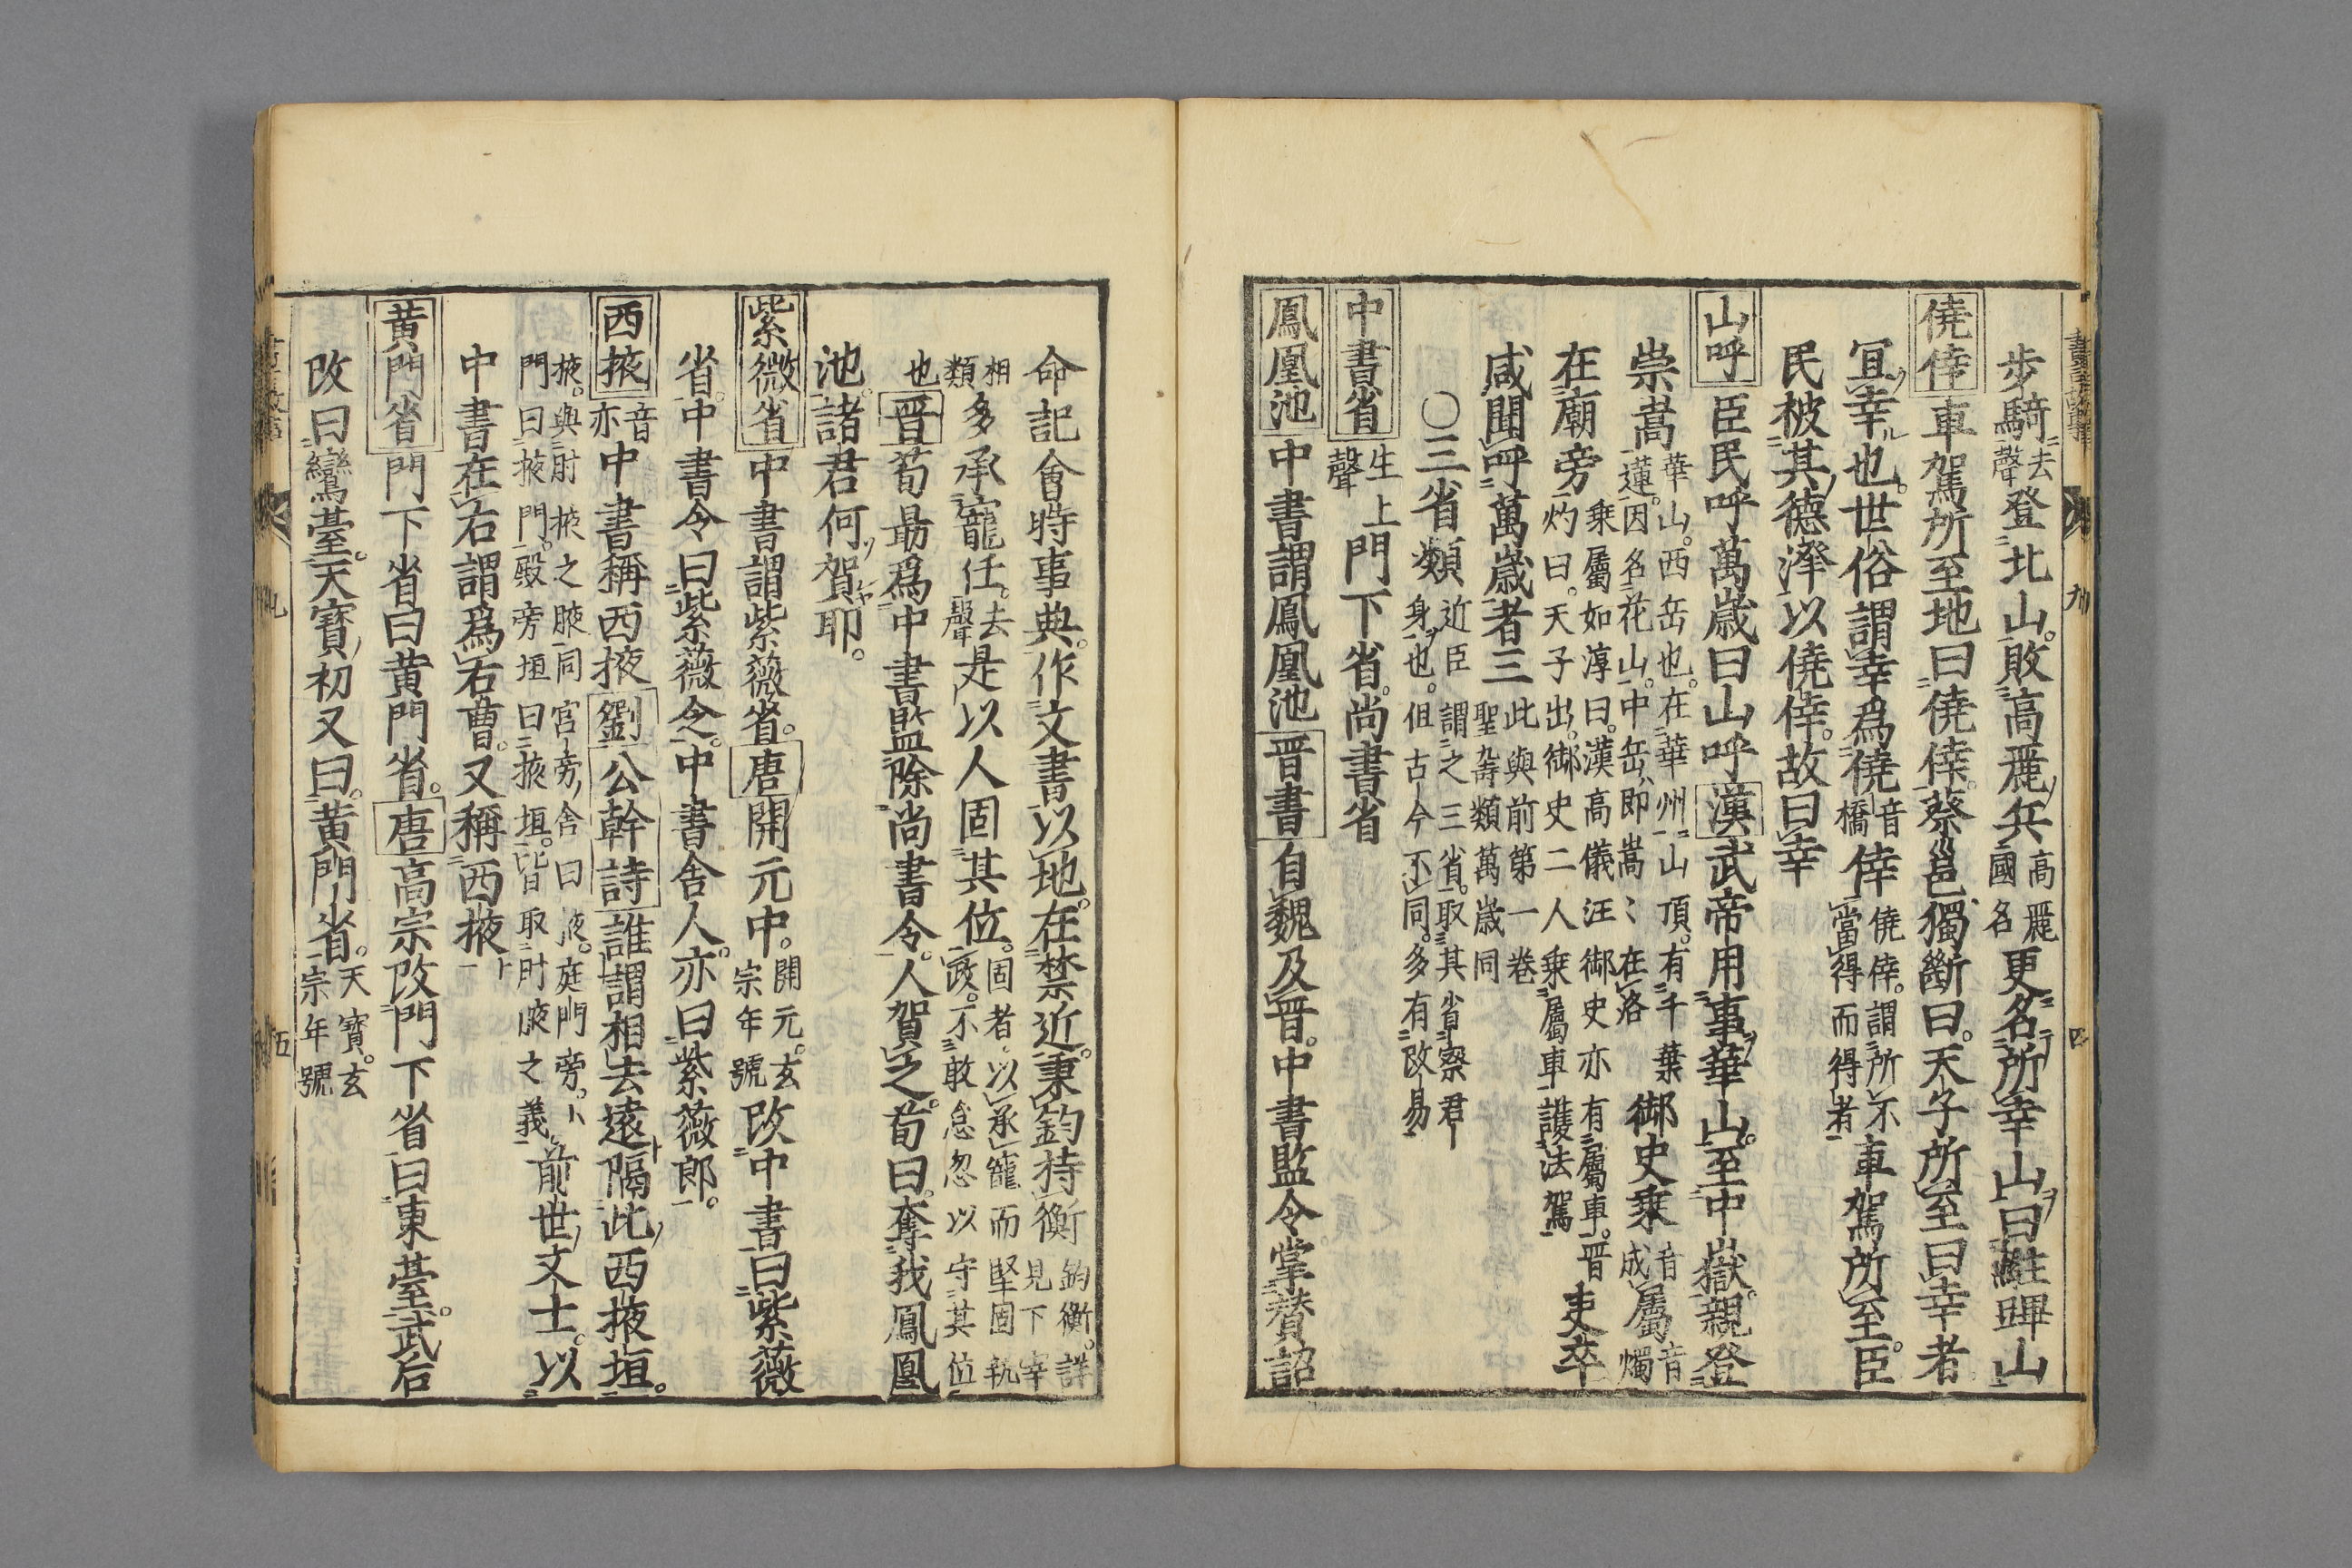 步騎去聲登北山敗高麗兵高麗國名更名所幸山曰駐蹕山
僥倖車駕所至地曰僥倖蔡邕獨斷曰天子所至曰幸者
宜幸也世俗謂幸爲僥音橋倖僥倖謂所不當得而得者車駕所至臣
民被其德澤以僥倖故曰幸
山呼臣民呼萬歲曰山呼漢武帝用事華山至中嶽親登
崇嵩華山西岳也在華州山頂有千葉蓮因名花山中岳即嵩〻在洛御史乘音成屬音燭
在廟旁乘屬如淳曰漢高儀注御史亦有屬車晋灼曰天子出御史二人乘屬車護法駕吏卒
咸聞呼萬歲者三此與前第一卷聖壽類萬歲同
〇三省類近臣謂之三省取其省察君身也但古今不同多有改易
中書省生上聲門下省尚書省
鳳凰池中書謂鳳凰池晋書自魏及晋中書監令掌賛詔
命記會時事典作文書以地在禁近秉鈞持衡鈞衡詳見下宰
相類多承寵任去聲是以人固其位固者以承寵而堅固執政不敢怠忽以守其位
也晋荀勗爲中書監除尚書令人賀之荀曰奪我鳳凰
池諸君何賀耶
紫微省中書謂紫薇省唐開元中開元玄宗年號改中書曰紫薇
省中書令曰紫薇令中書舍人亦曰紫薇郎
西掖音亦中書稱西掖劉公幹詩誰謂相去遠隔此西掖垣
掖與肘掖之腋同宮旁舍曰掖庭門旁小門曰掖門殿旁垣曰掖垣皆取肘腋之義前世文士以
中書在右謂爲右曹又稱西掖
黄門省門下省曰黄門省唐高宗改門下省曰東臺武后
改曰鸞臺天寶初又曰黄門省天寶玄宗年號